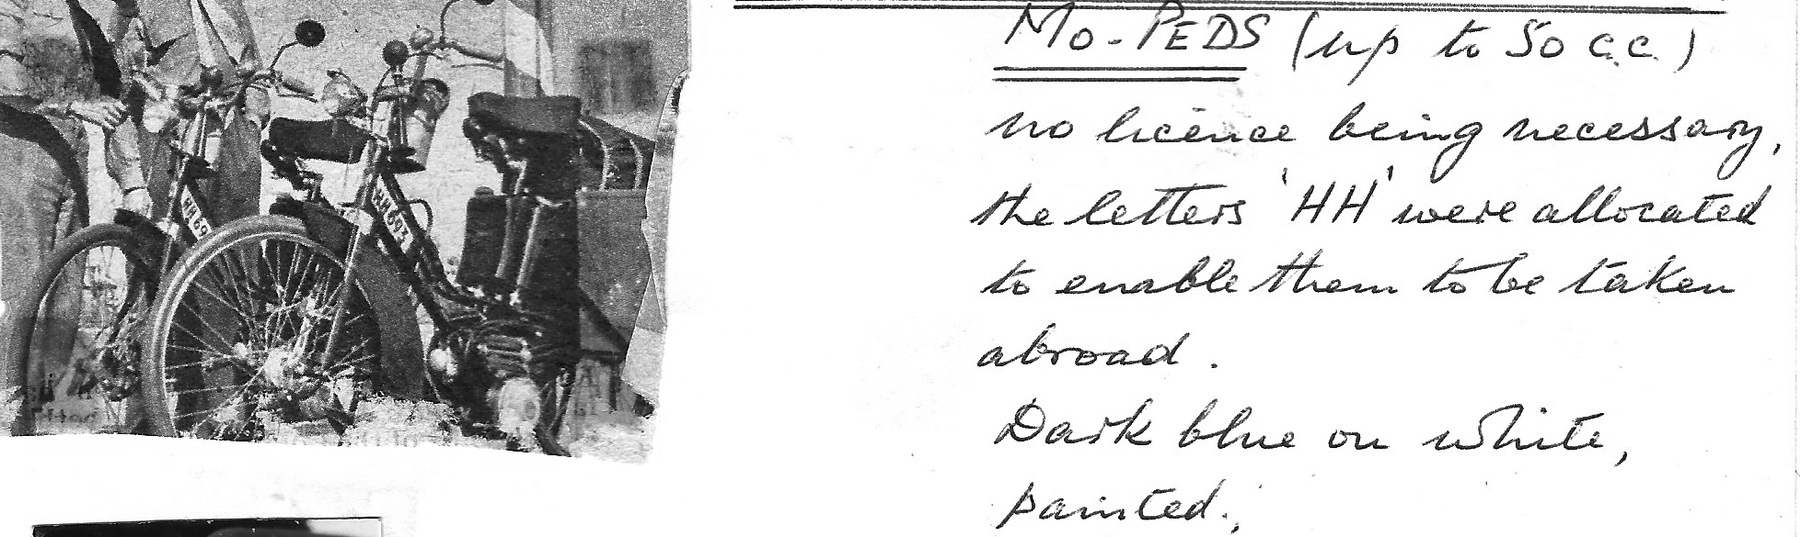 MO-PEDS (up to 50 c.c.)
no licence being necessary,
the letters 'HH' were allocated
to enable them to be taken
abroad.
Dark blue on white,
painted.
HH 69
HH 693